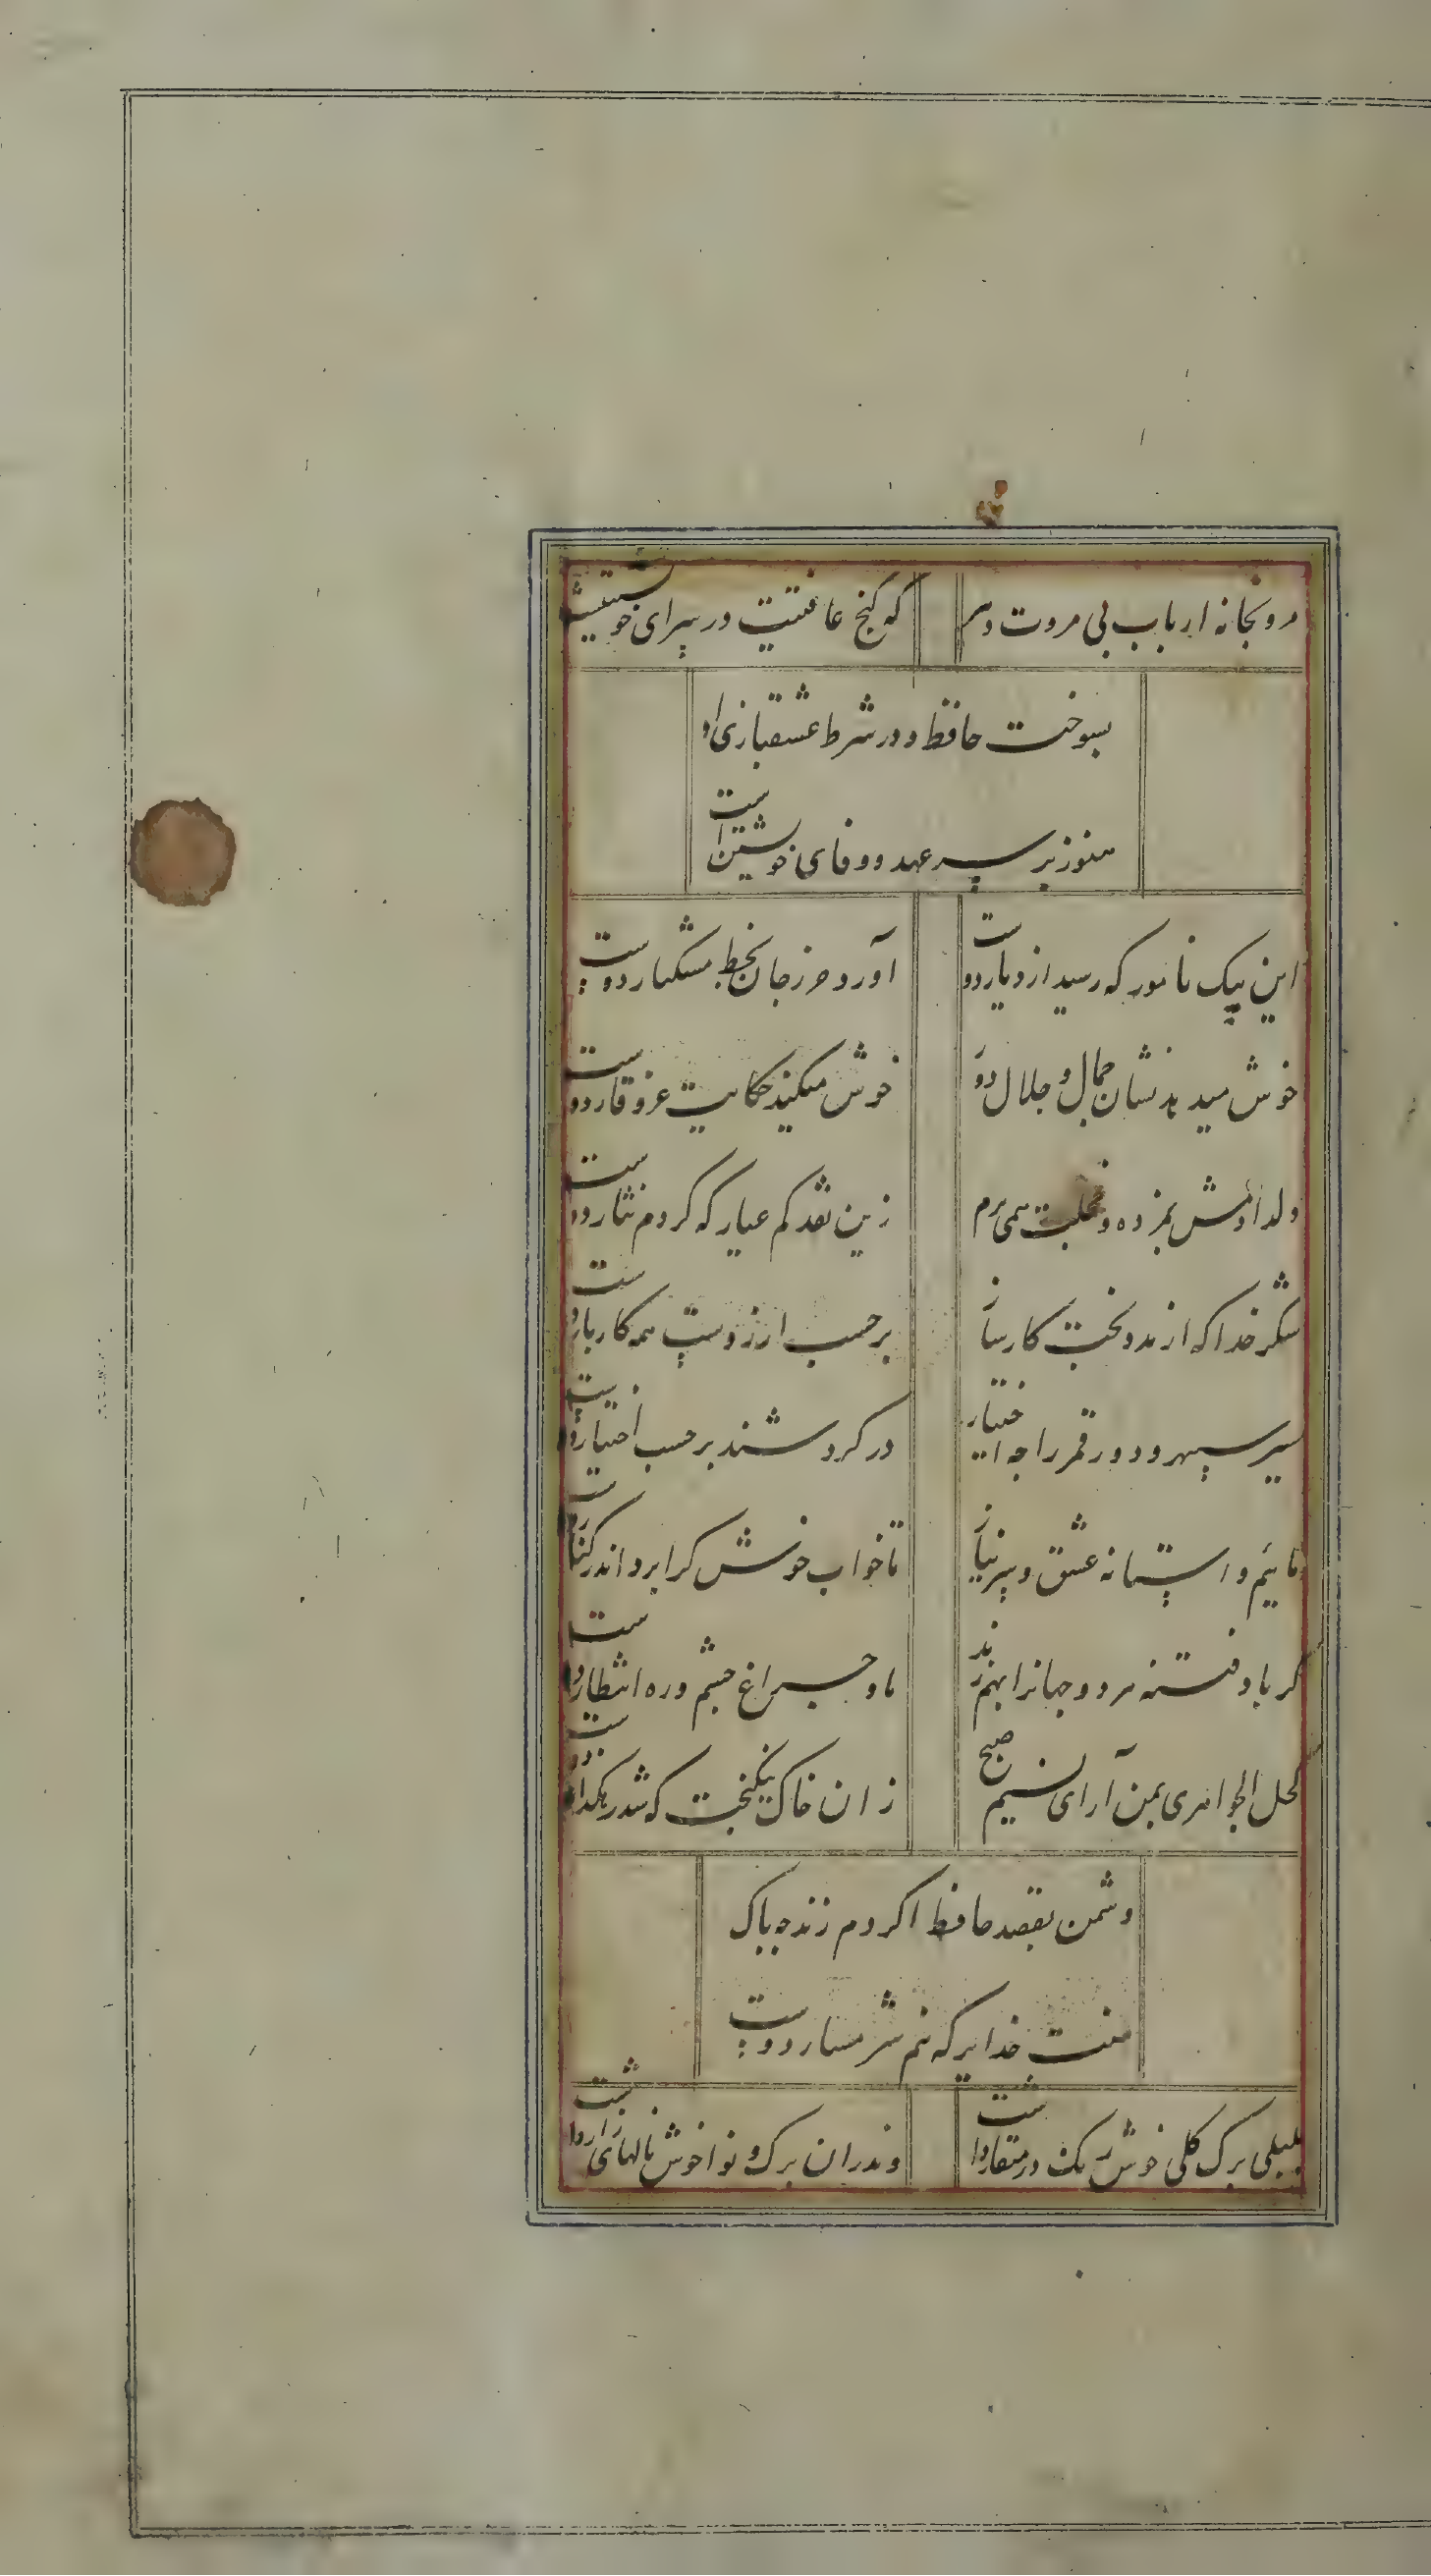 مرو بخانه ارباب بی مروت دهر که کنج عافیتت در سرای خویشتنست
بسوخت حافظ و در شرط عشقبازی او
هنوز بر سر عهد و وفای خویشتن است
این پیک نامور که رسید از دیار دوست آورد حرز جان بخط مشکبار دوست
خوش میدهد نشان جمال و جلال دوست خوش میکند حکایت عز و قار دوست
دلدادمش بمژده و خجلت همی برم زین نقد کم عیار که کردم نثار دوست
شکر خدا که از مدد بخت کارساز بر حسب ارزوست همه کار بار دوست
سیر سپهر و دور قمر را چه اختیار در کردشند بر حسب اختیار دوست
مائیم و استانه عشق و سر نیاز تا خواب خوش کرا برد اندر کنار دوست
کر باد فتنه هر دو جهانرا بهم زند ما و چراغ چشم و ره انتظار دوست
کحل الجواهری بمن آر ای نسیم صبح زان خاک نیکبخت که شد رهکذار دوست
دشمن بقصد حافظ اکر دم زند چه باک
منت خدایرا که نیم شرمسار دوست
بلبلی برک کلی خوش رنک در منقار داشت وندران برک و نوا خوش نالهای زار داشت